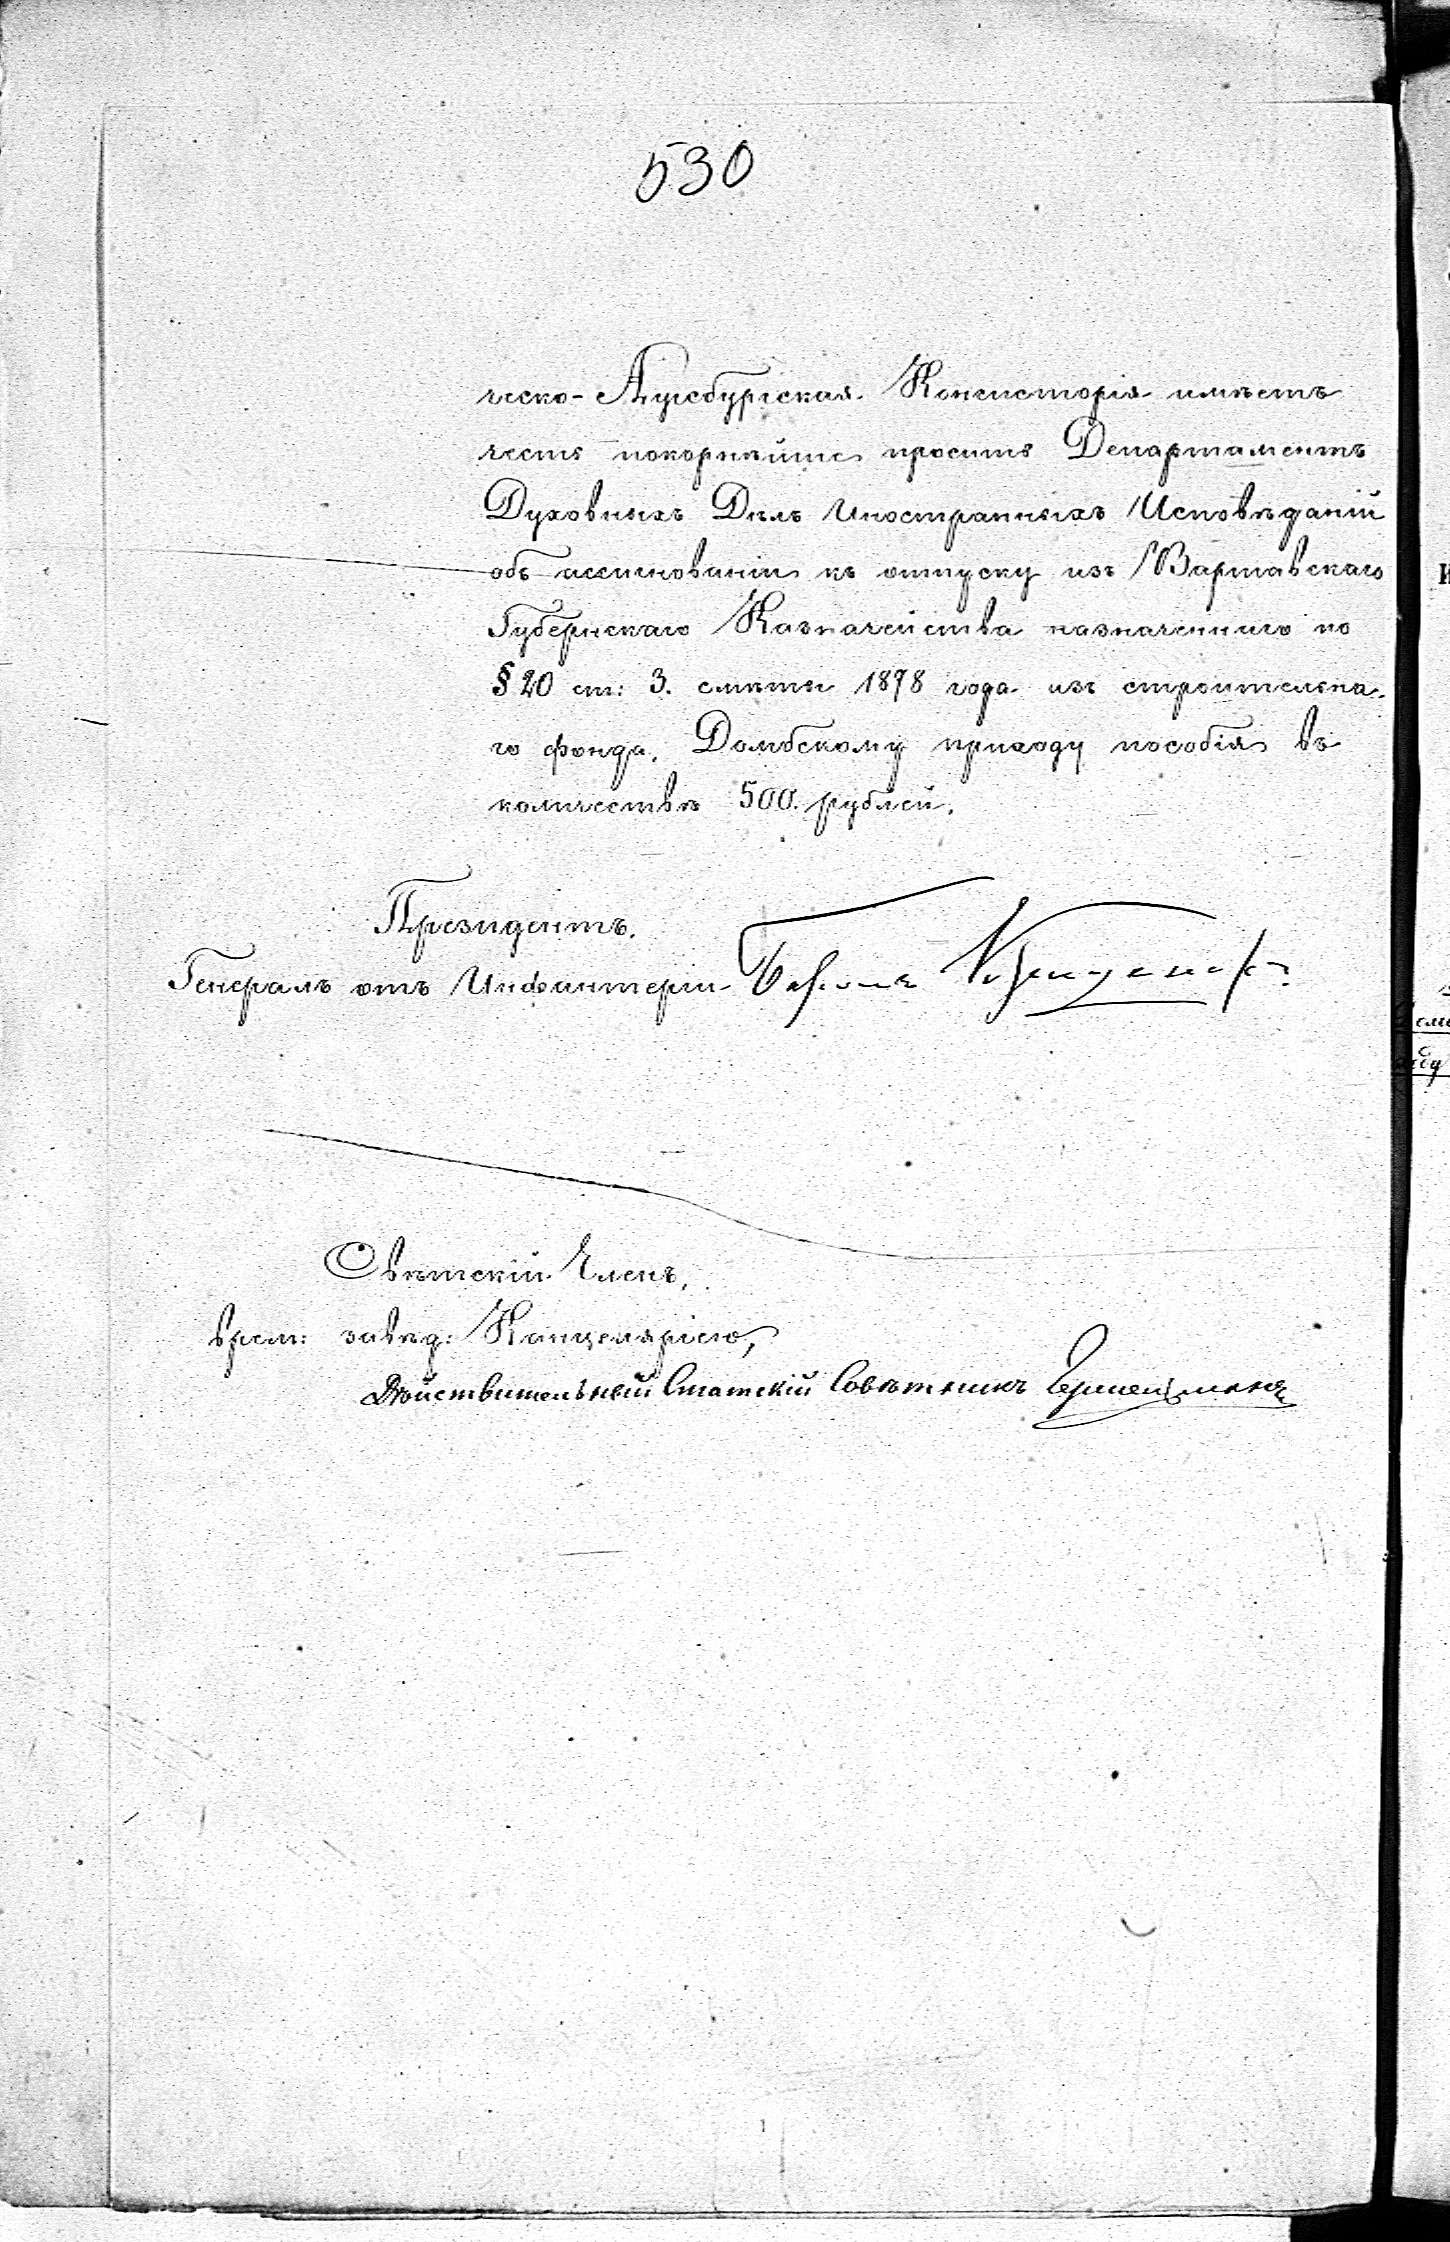 530
ческо-Аугсбургская Консисторія имѣетъ
честь покорнѣйше просить Департаментъ
Духовныхъ Дѣлъ Иностранныхъ Исповѣданій
объ ассигнованіи къ отпуску изъ Варшавскаго
Губернскаго Казначейства назначеннаго по
§ 20 ст: 3. смѣты 1878 года изъ строительна-
го фонда, Домбскому приходу пособія въ
количествѣ 500 рублей.
Президентъ,
Генералъ отъ Инфантеріи Баронъ
Свѣтскій Членъ,
врем: завѣд: Канцеляріею,
Дѣйствительный Статскій Совѣтникъ